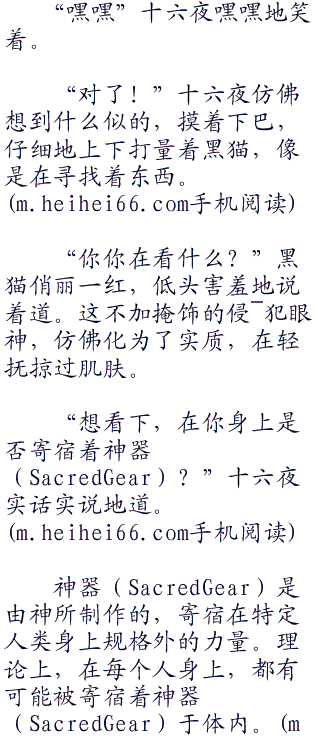 “嘿嘿”十六夜嘿嘿地笑
着。
“对了！”十六夜仿佛
想到什么似的，摸着下巴，
仔细地上下打量着黑猫，像
是在寻找着东西。
(m.heihei66.com手机阅读)
“你你在看什么？”黑
猫俏丽一红，低头害羞地说
着道。这不加掩饰的侵ˉ犯眼
神，仿佛化为了实质，在轻
抚掠过肌肤。
“想看下，在你身上是
否寄宿着神器
（SacredGear）？”十六夜
实话实说地道。
(m.heihei66.com手机阅读)
神器（SacredGear）是
由神所制作的，寄宿在特定
人类身上规格外的力量。理
论上，在每个人身上，都有
可能被寄宿着神器
（SacredGear）于体内。(m